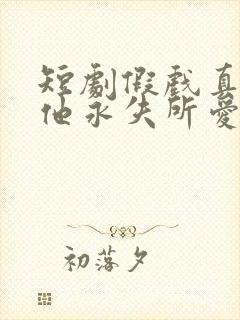 短劇假戲真
他永失所愛
初落夕